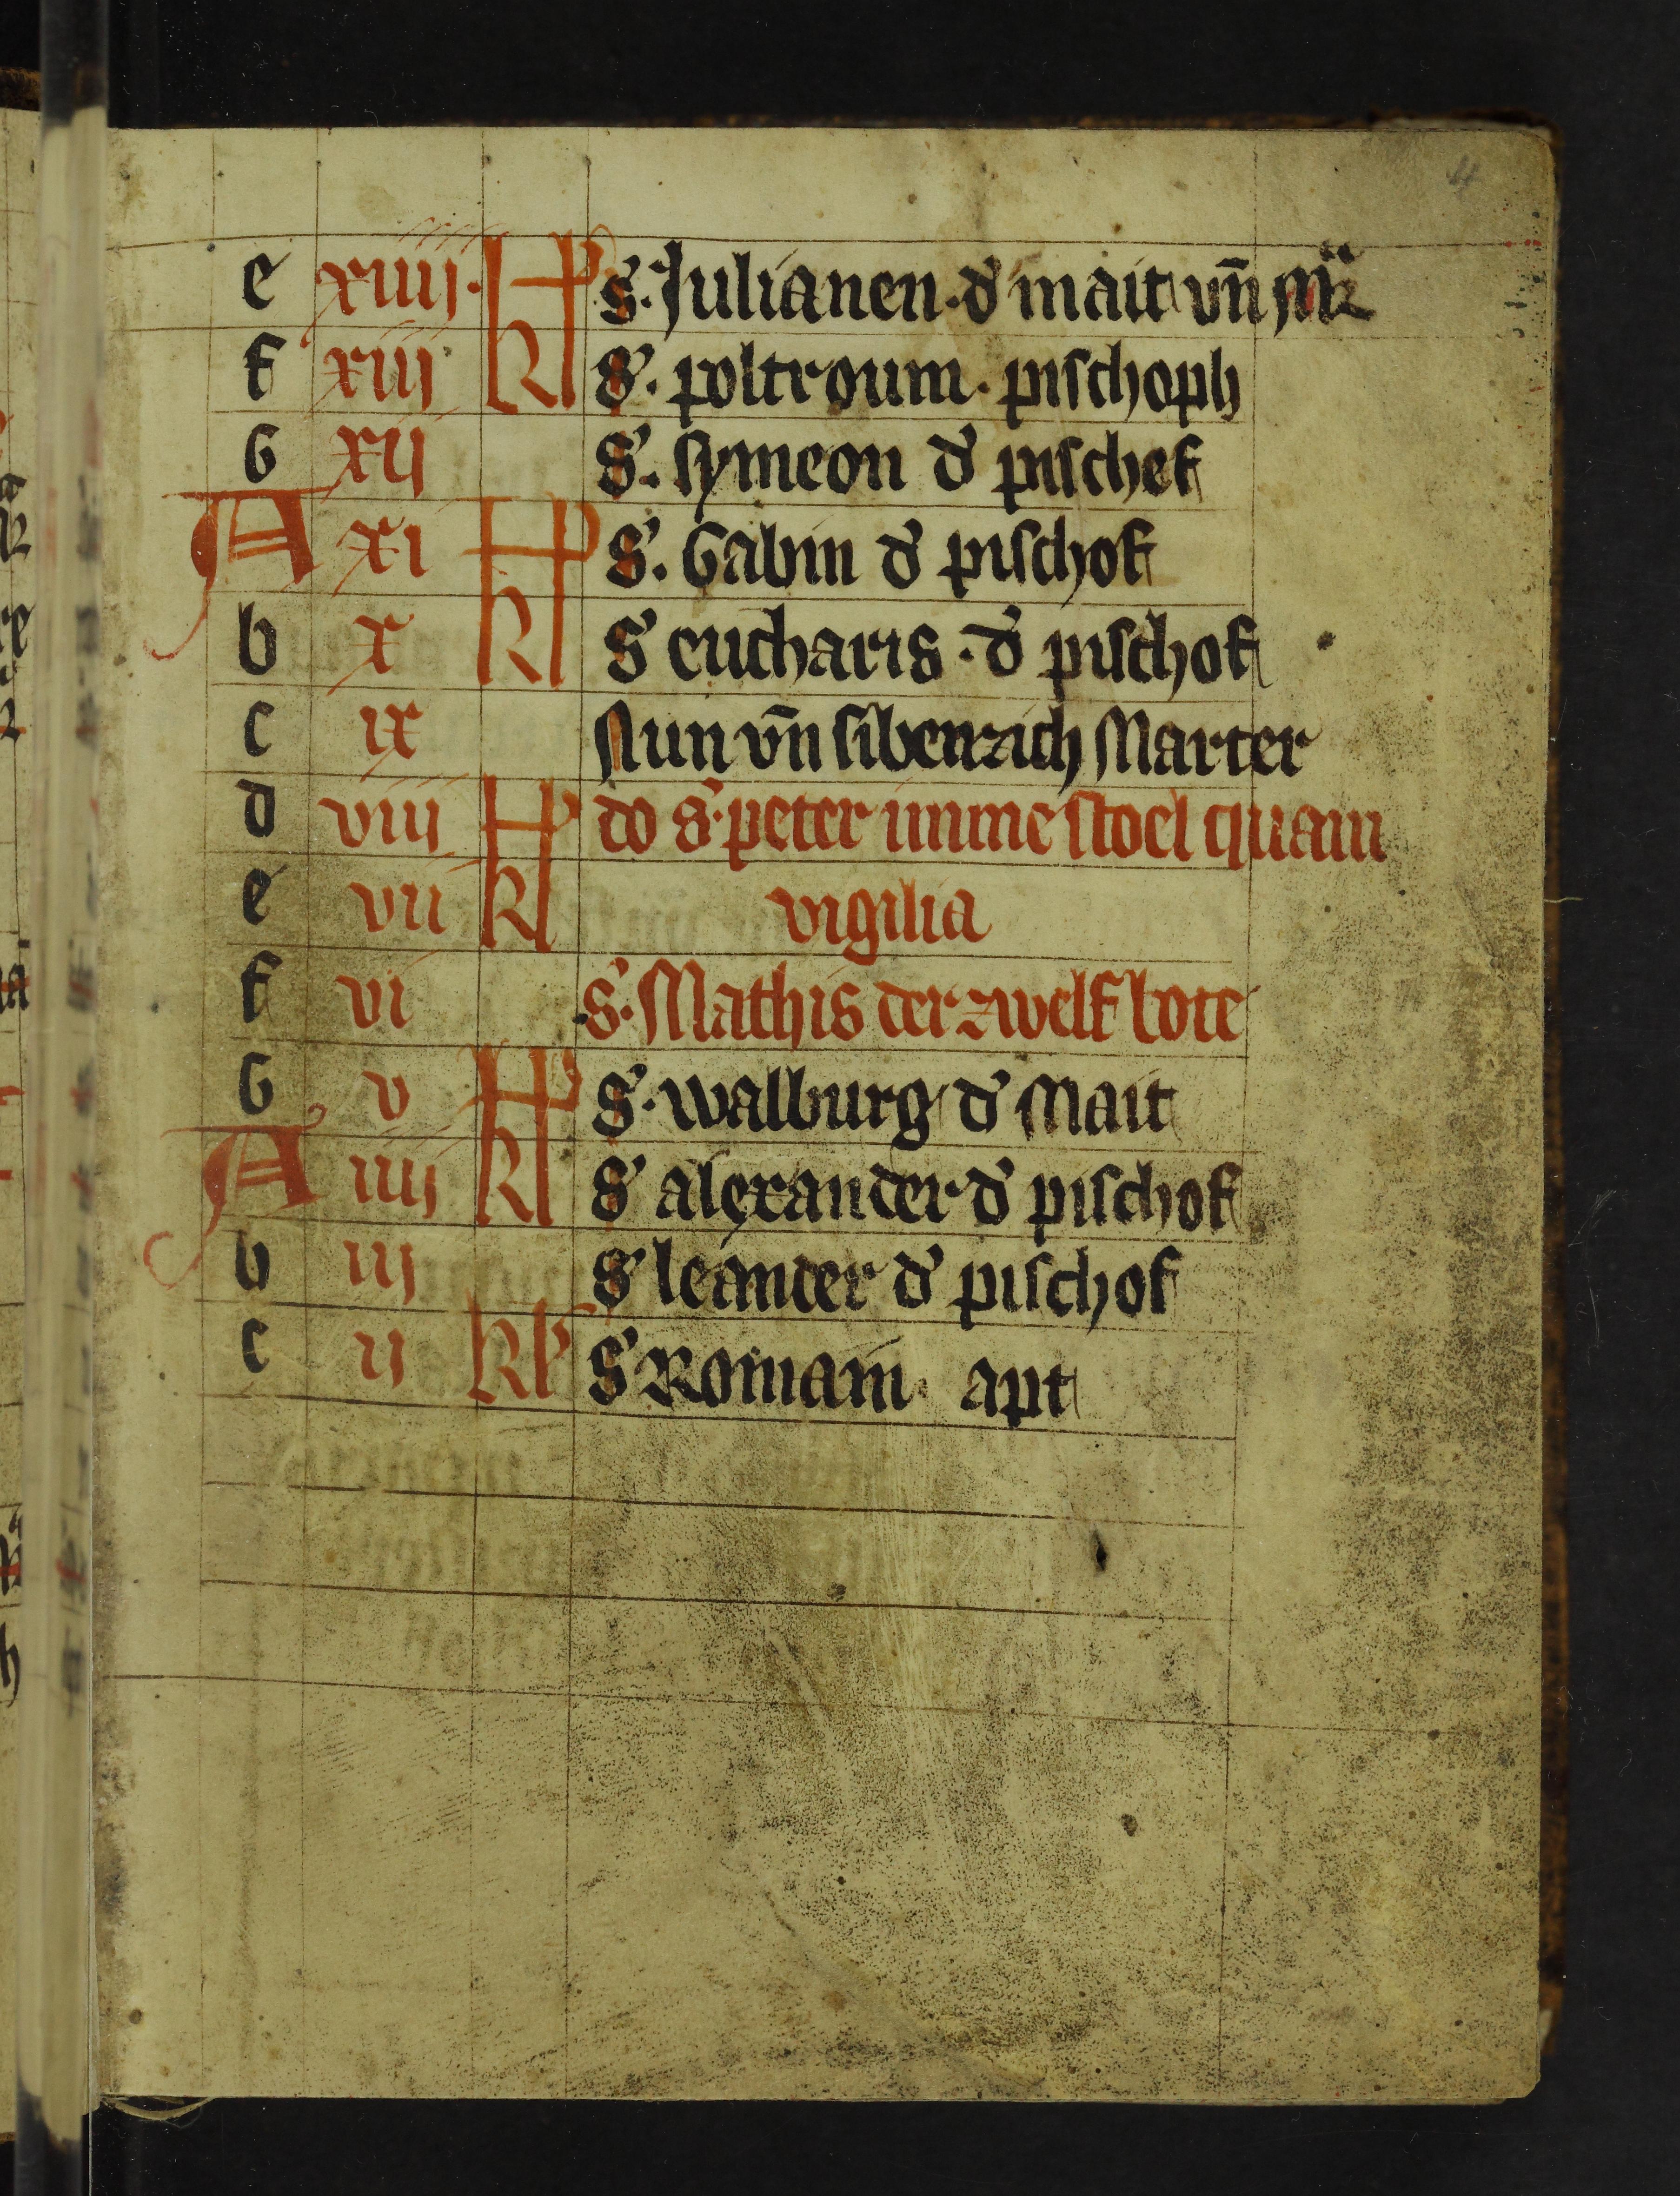 4
e xiiij. kl s. Julianen. đ mait vn̄ mͬ
f xiij kl s. poltroum. pischoph
G xij s. symeon đ pischof
A xi kl s. Gabin đ pischof
b x kl s eucharis. đ pischof
c ix Nun vn̄ sibenzich Marter
d viij kl do s. peter imme stoel quam
e vii kl vigilia
f vi s. Mathis der zwelf bote
G v kl s. walburg đ Mait
A iiij kl s alexander đ pischof
b iij s leander đ pischof
c ij kl s Romani apt